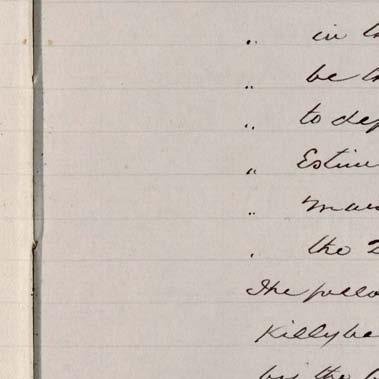 " in th
" be th
" to dep
" Estim
"
" the
The follo
Killybe
by the